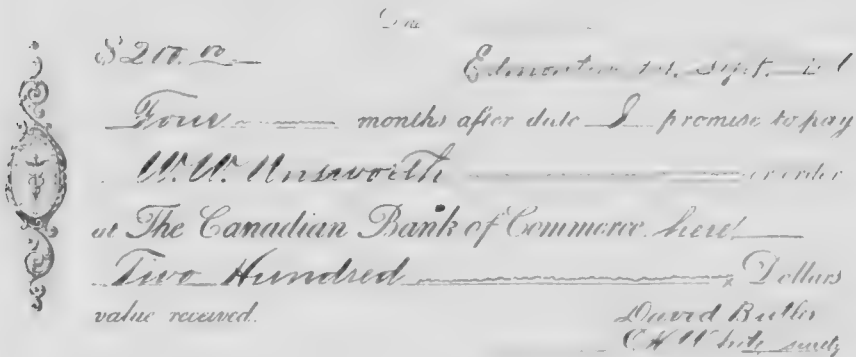 Due
$200.00
Edmonton Sept.
Four months after date I promise to pay
W. W. Unsworth or order
at The Canadian Bank of Commerce here
Two Hundred Dollars
value received.
David Butler
C H White surety